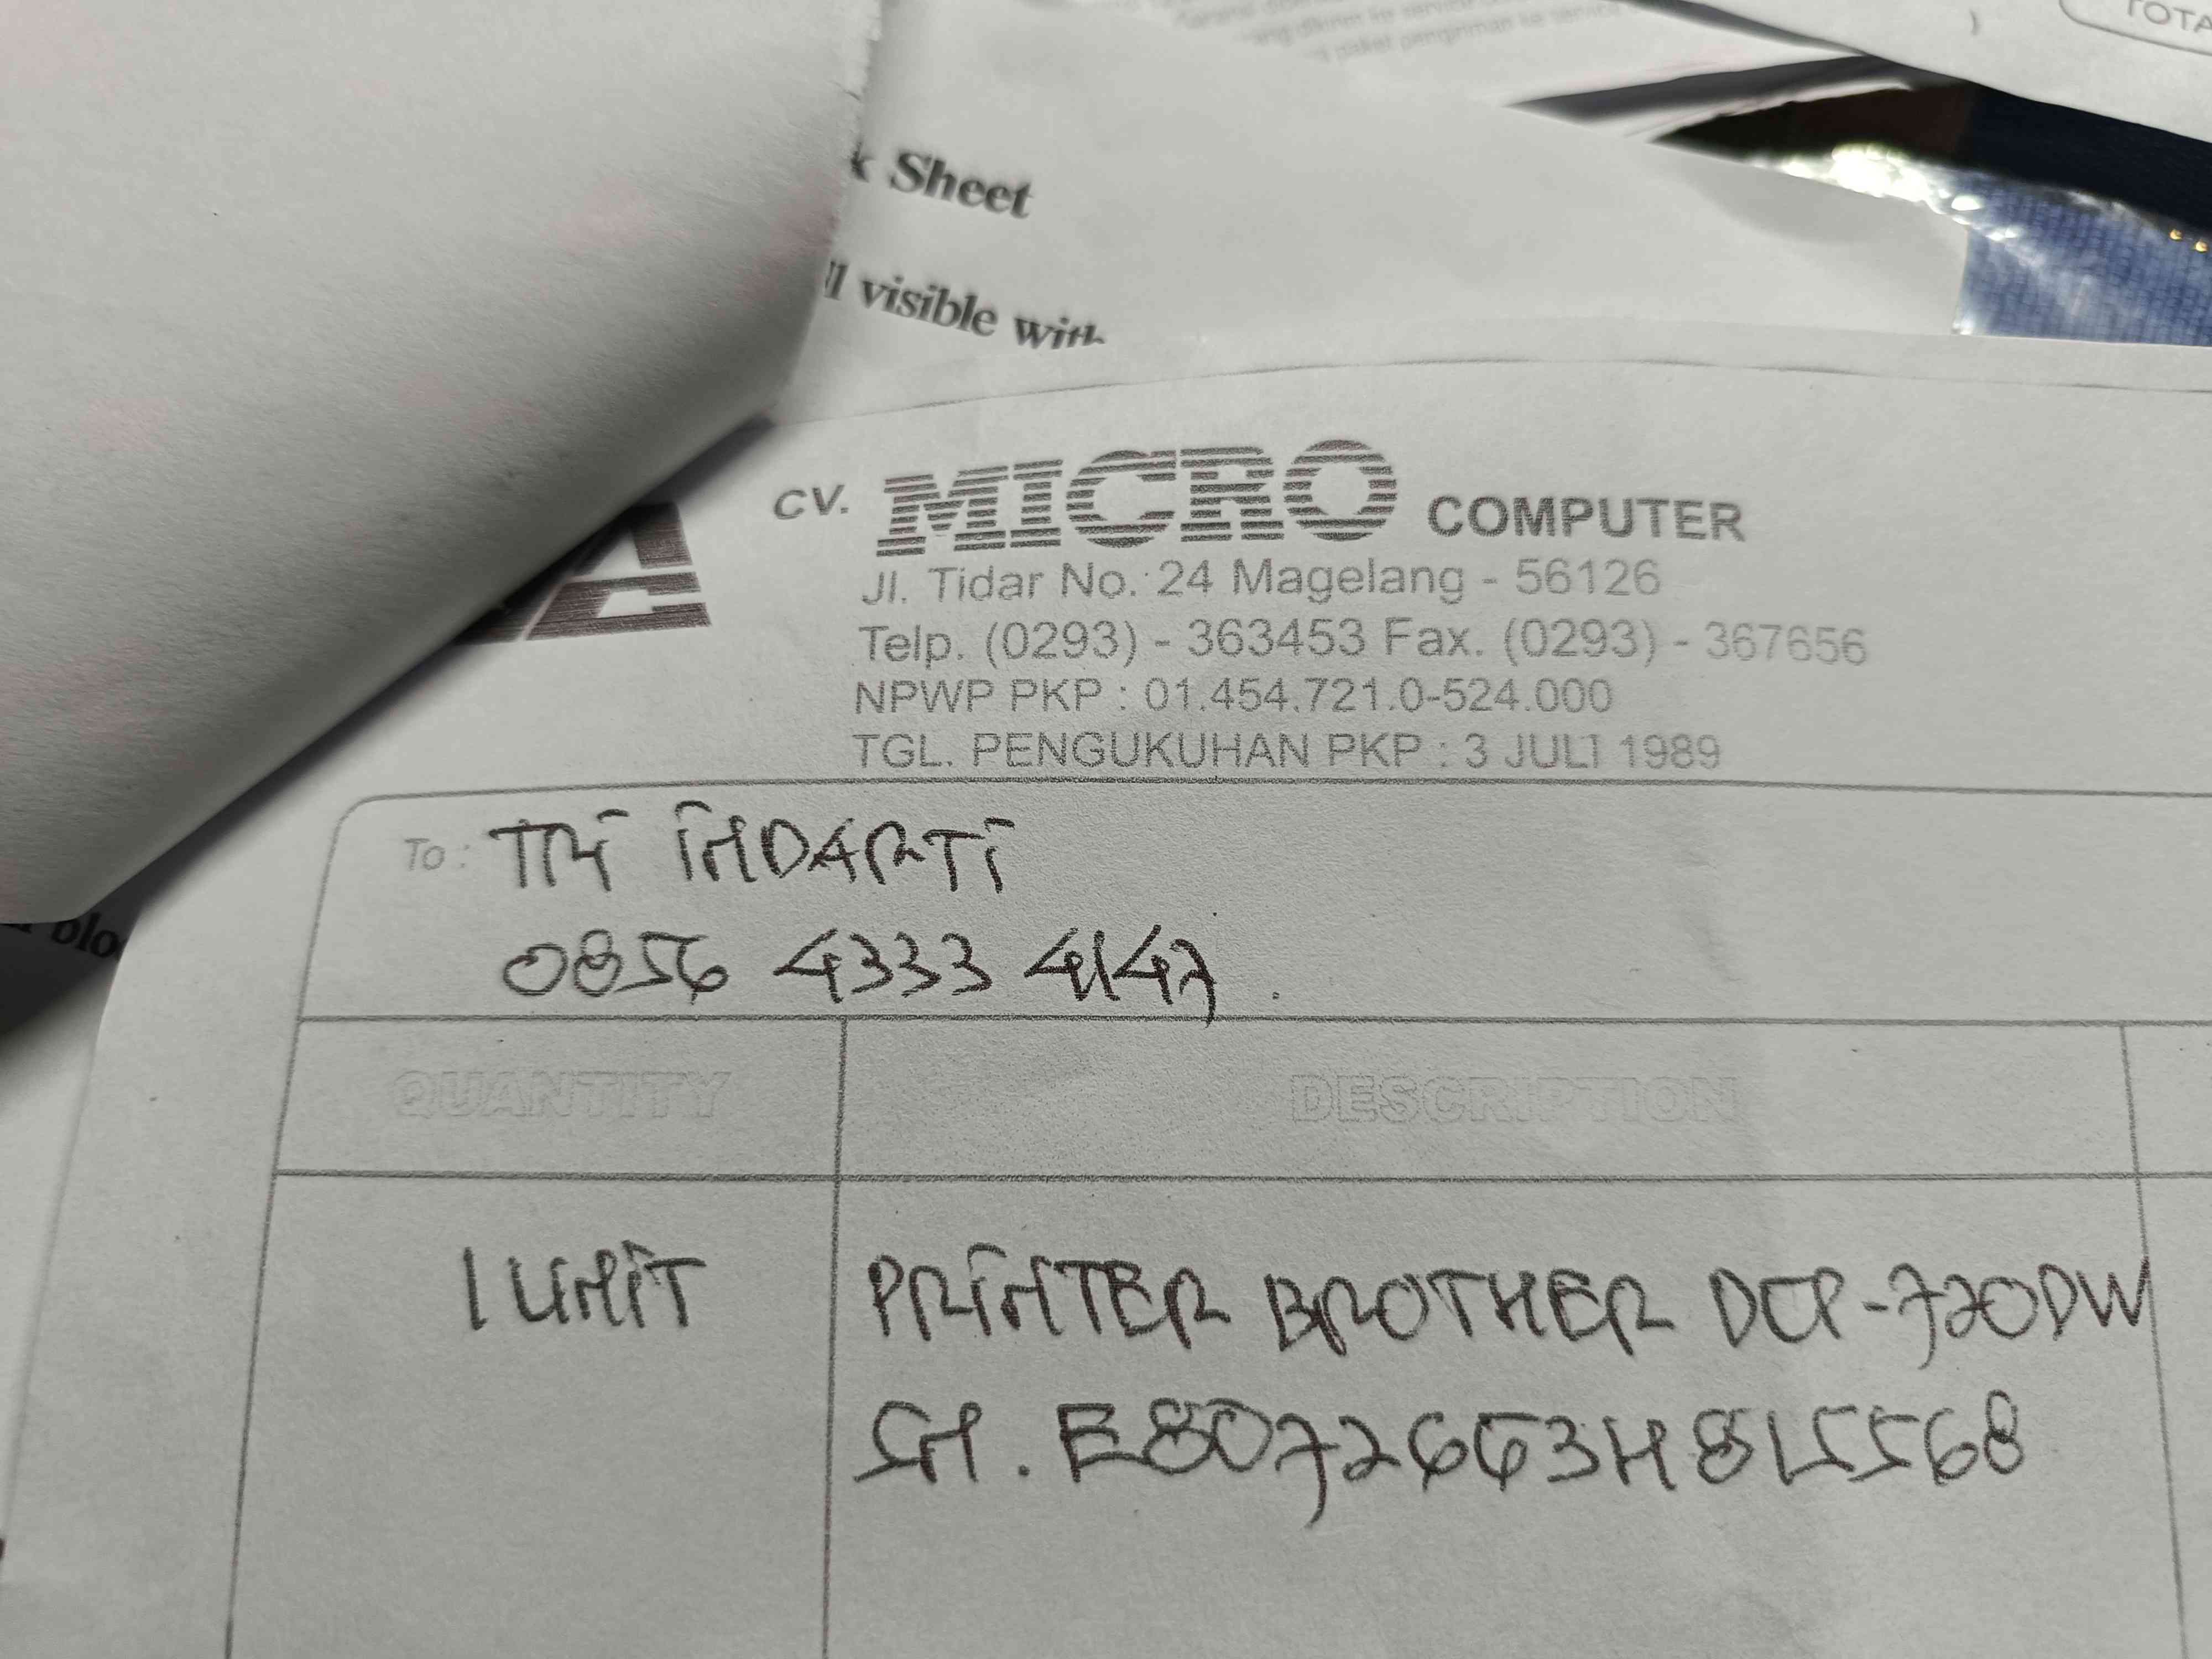 Sheet
visible with
CV. MICRO COMPUTER
Jl. Tidar No. 24 Magelang - 56126
Telp. (0293) - 363453 Fax. (0293) - 367656
NPWP PKP : 01.454.721.0-524.000
TGL. PENGUKUHAN PKP : 3 JULI 1989
To : TRI INDARTI
0856 4333 4147
QUANTITY DESCRIPTION
1 UNIT PRINTER BROTHER DCP-720DW
SN. E80726663H815568